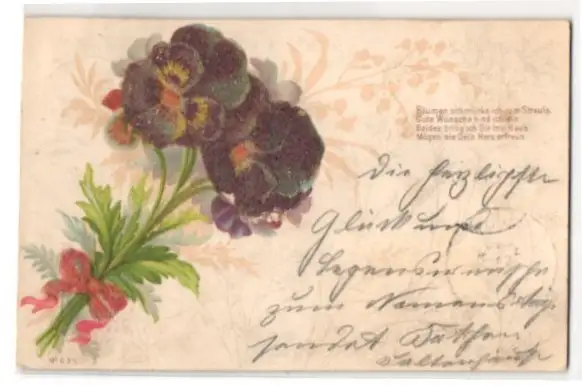 Blumen pflückte ich zum Strauß,
Gute Wünsche bind ich ein
Beides bring ich Dir ins Haus
Mögen sie Dein Herz erfreun
Die herzlichste
Glück und
Segenswünsche
zum Namenstage
sendet